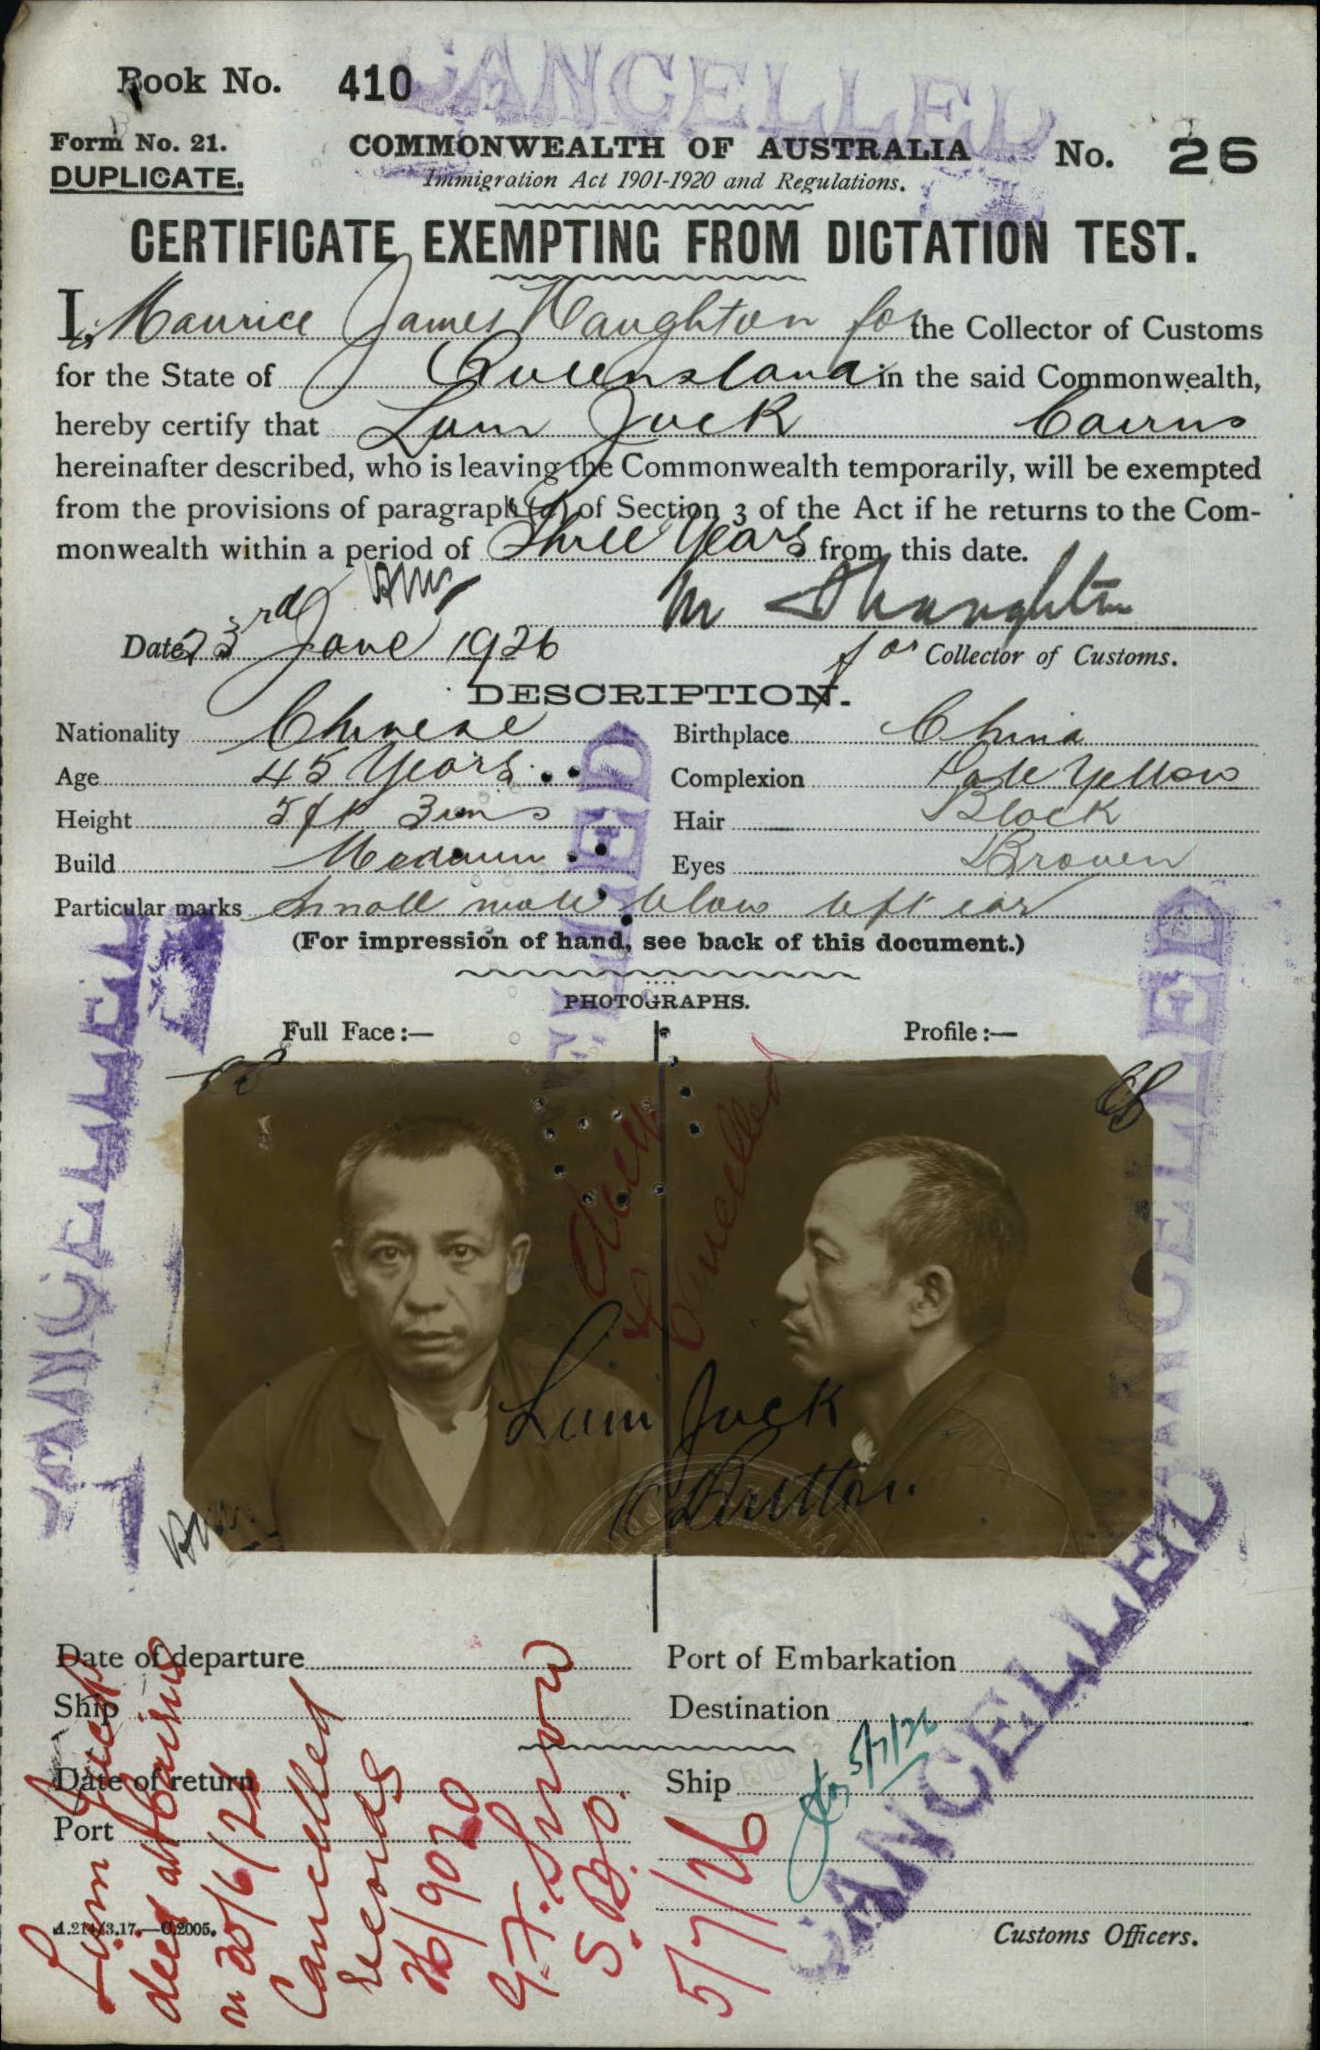 CANCELLED
Book No. 410
Form No. 21.
DUPLICATE.
COMMONWEALTH OF AUSTRALIA
No. 26
Immigration Act 1901-1920 and Regulations.
CERTIFICATE EXEMPTING FROM DICTATION TEST.
I, Maurice James Naughton for the Collector of Customs
for the State of Queensland in the said Commonwealth,
hereby certify that Lum Juck Cairns
hereinafter described, who is leaving the Commonwealth temporarily, will be exempted
from the provisions of paragraph (a) of Section 3 of the Act if he returns to the Com-
monwealth within a period of Three Years from this date.
M J Naughton
Date 23rd June 1926
for Collector of Customs.
DESCRIPTION.
Nationality Chinese Birthplace China
Age 45 Years Complexion Pale Yellow
Height 5 ft 3 ins Hair Black
Build Medium Eyes Brown
Particular marks Small mole below left ear
(For impression of hand, see back of this document.)
CANCELLED
PHOTOGRAPHS.
Full Face:— Profile:—
Cancelled
Lum Juck
CANCELLED
CANCELLED
Date of departure Port of Embarkation
Ship Destination
5/7/26
Date of return Ship
Port
Lum Juck
died at Cairns
on 30/6/26
Cancelled
records
26/9020
S.B.O.
5/7/26
CANCELLED
Customs Officers.
A.214/3.17.—C.2005.